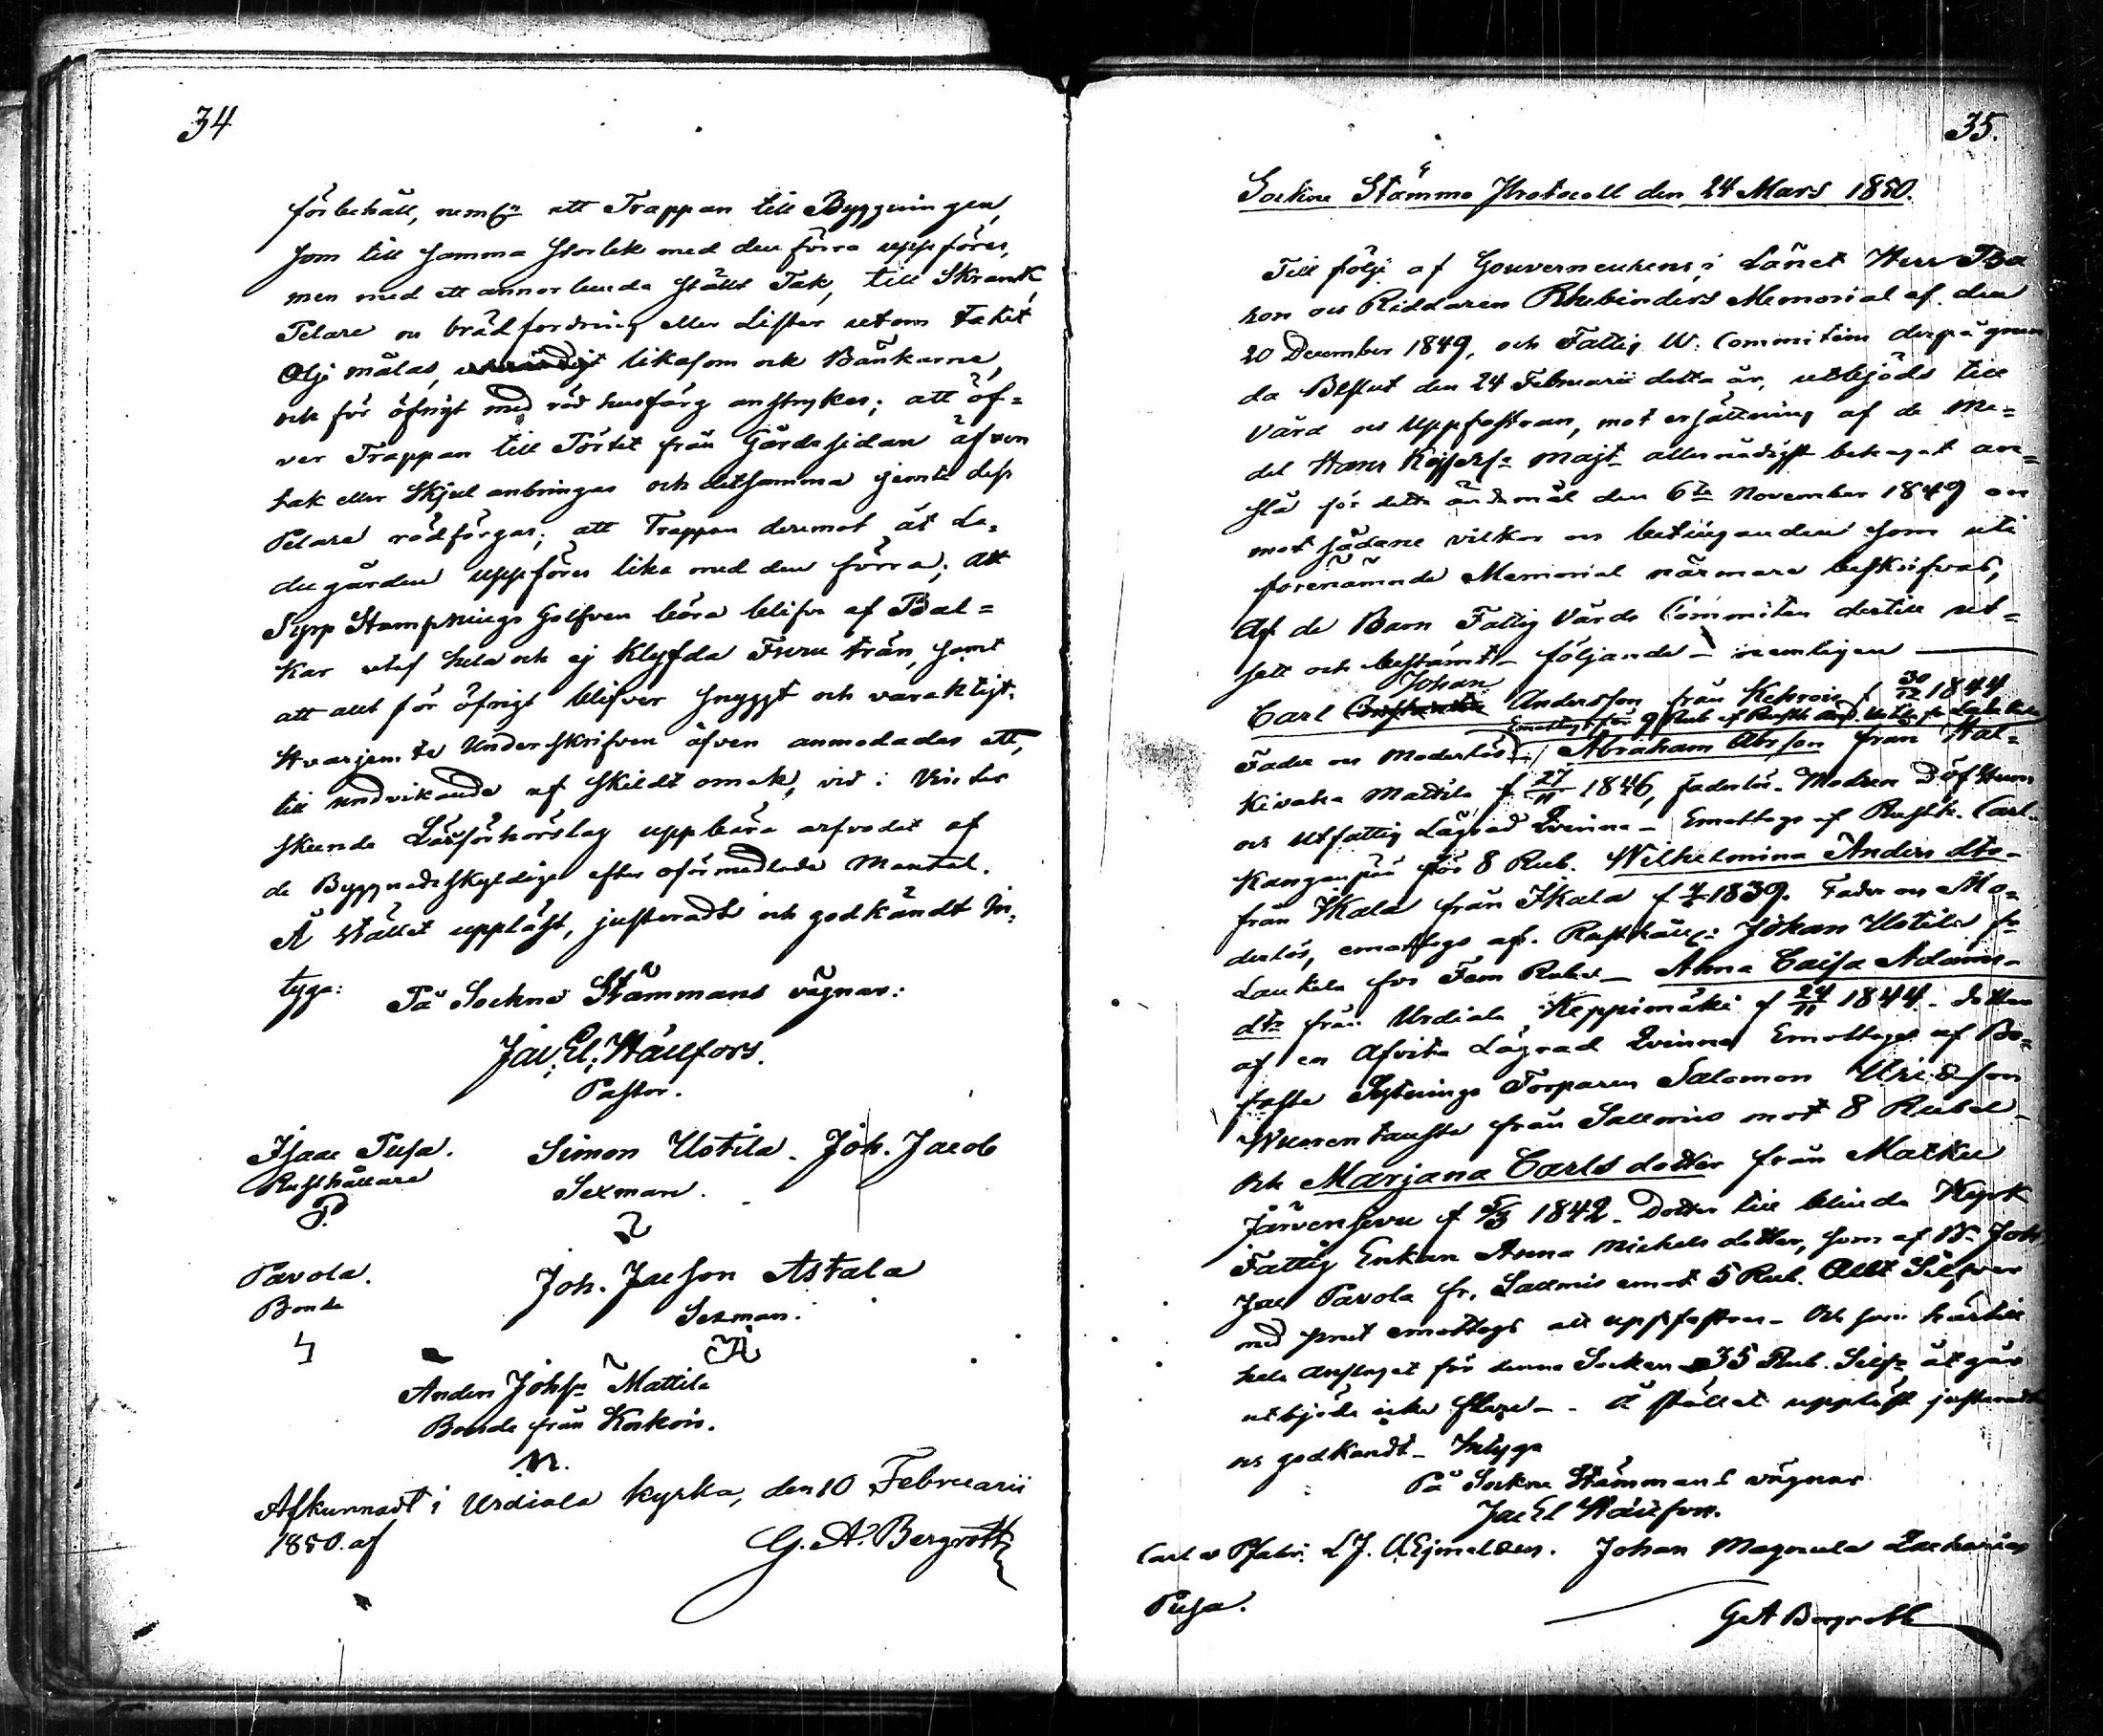 34
förbehåll, neml:n att Trappan till Byggningen,
som till samma storlek med den förra uppföres,
men med ett annorlunda ställt Tak, till Skrank,
Pelare och brädfordring eller Lister utom taket
Olje målas, likasom ock Bänkarne,
och för öfrigt med röd husfärg anstrykes; att öf=
ver Trappan till Pörtet från Gårdssidan äfven
tak eller Skjul anbringas och detsamma jemte dess
Pelare rödfärgas; att Trappan deremot åt La=
dugården uppföres lika med den förra; att
Stampnings Golfven böra blifva af Bal=
kar utaf hela och ej klyfda Furu trän, samt
att allt för öfrigt blifver snyggt och varaktigt.
Hvarjemte Underskrifven äfven anmodades att,
till undvikande af skildt omak, vid i Vinter
skeende Läsförhörslag uppbära arfvodet af
de Byggnadsskyldige efter oförmedlade Mantal.
År ställt uppläst, justeradt och godkändt in=
tyga:
På Sockne Stämmans vägnar:
Jac. El. Hällfors.
Pastor.
Isaac Pusa. Simon Uotila. Joh. Jacob
Rusthållare Sexman.
P.
Pavola. Joh. Jacsson Astala
Bonde Sexman.
Anders Johss:n Mattila
Bonde från Koskois.
M.
Afkunnadt i Urdiala kyrka, den 10 Februarii
1850. af G. A. Bergroth
35.
Sockne Stämmo Protocoll den 24 Mars 1850.
Till följe af Gouverneurens i Länet Herr Ba
ron och Riddaren Rhebinders Memorial af den
20 December 1849, och Fattig W: Committéns derpå grun
da Beslut den 24 Februarii detta år, utbjöds till
Vård och Uppfostran, mot ersättning af de me=
del Hans Kejserl:a Majt allernådigst behagat an=
slå för detta ändamål den 6te November 1849 och
mot sådane vilkor och betinganden som uti
förenämnde Memorial närmare beskrifvas,
Af de Barn Fattig Vårds Committén dertill ut=
sett och bestämt följande nemligen
Johan
Carl Andersson från Kehrois f 30/12 1844
Emottogs för 9 Rub af Rusth And. Uotila fr Laukela
Fader och Moderlös. Abraham Abrsson från Hal=
kivaha Mattila f 27/11 1846, faderlös. Modren Döfstum
och utfattig Lägrad Qvinna – Emottogs af Rusth. Carl
Kangenpää för 8 Rub. Wilhelmina Anders dtr –
från Ikala från Ikala f 1839. Fader och Mo=
derlös, emottogs af Rusthåll: Johan Uotila fr
Laukela för Fem Rubel – Anna Caisa Adams=
dtr från Urdiala Keppimäki f 24/11 1844. dotter
af en afvita Lägrad Qvinna Emottages af Bo=
fasta Sytnings Torparen Salomon
från Salmis mot 8 Rubel –
Och Marjana Carls dotter från Matku
Järvensivu f 5/3 1842. Dotter till blinda Kyrk
Fattig Enkan Anna Michels dotter, som af B. Joh
Jac Pavola fr. Salmis emot 5 Rub. Allt Silfver
mynt emottogs att uppfostra – Och som härtill
hela anslaget för denna Socken 35 Rub. Silfr åtgår
utbjöds icke flere – . Å stället uppläst justeradt
och godkändt – Intyga
På Sockne Stämmans vägnar
Jac El Hällfors.
Carl Johan Magnula Zacharias
Pusa.
G A Bergroth